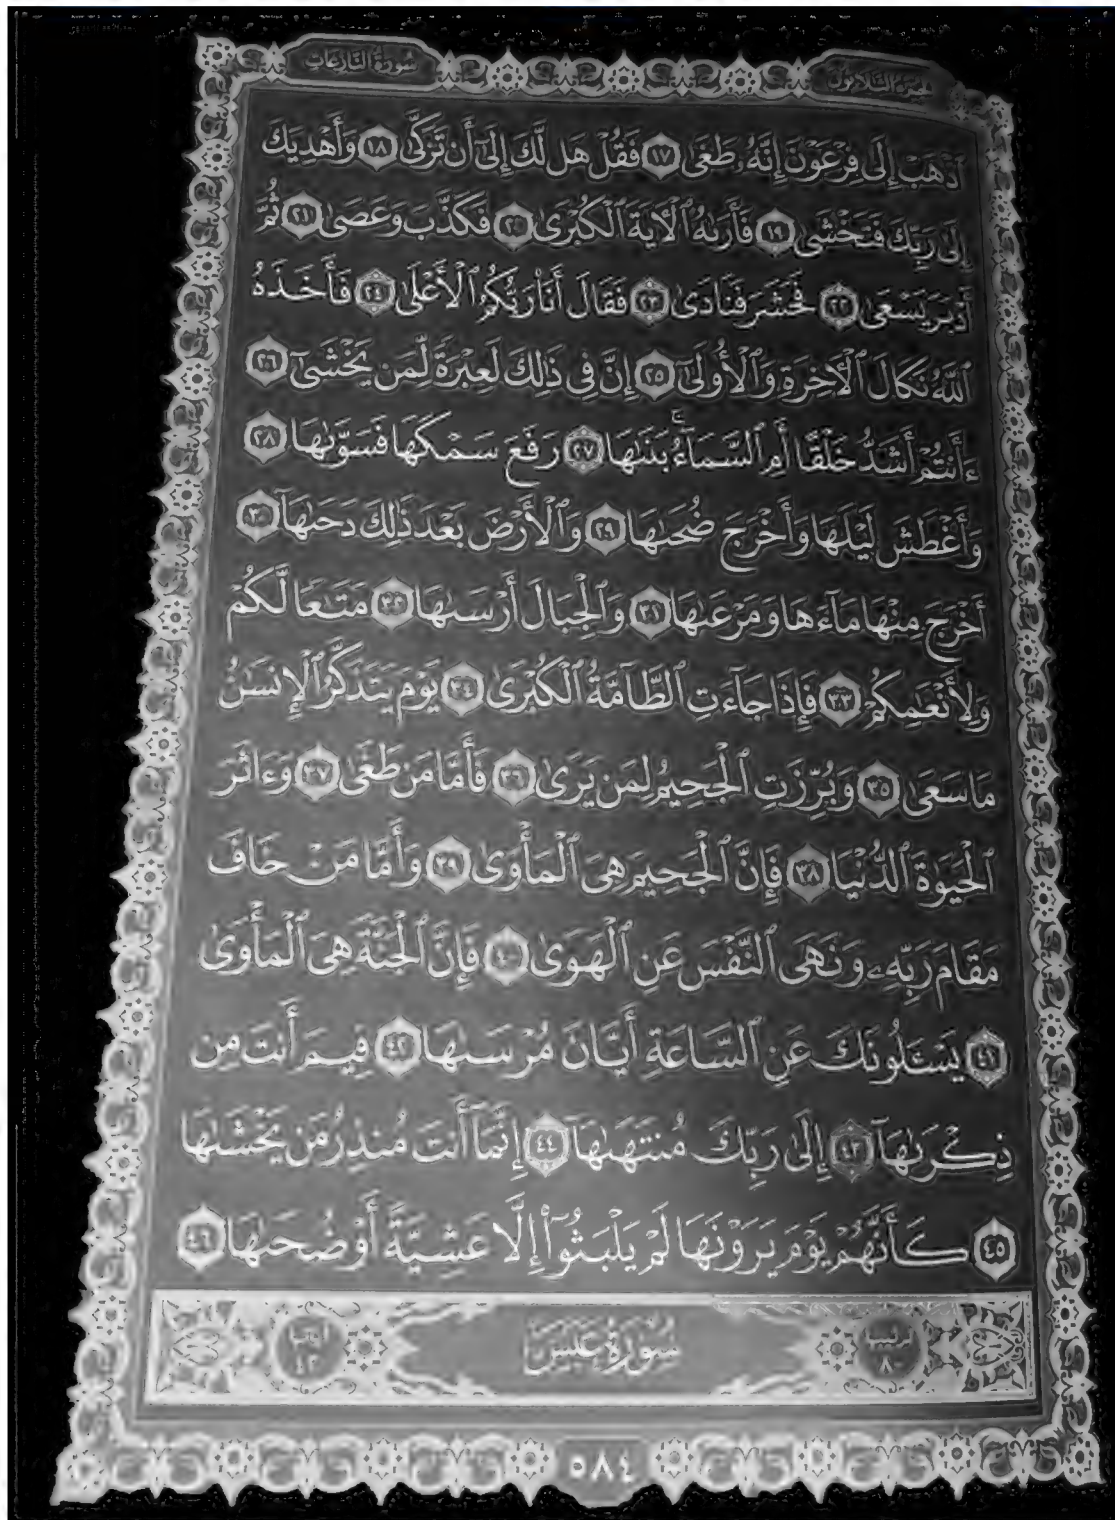 سُورَةُ النَّازِعَاتِ الجُزْءُ الثَّلَاثُونَ
ٱذْهَبْ إِلَىٰ فِرْعَوْنَ إِنَّهُۥ طَغَىٰ ١٧ فَقُلْ هَل لَّكَ إِلَىٰٓ أَن تَزَكَّىٰ ١٨ وَأَهْدِيَكَ
إِلَىٰ رَبِّكَ فَتَخْشَىٰ ١٩ فَأَرَىٰهُ ٱلْأٓيَةَ ٱلْكُبْرَىٰ ٢٠ فَكَذَّبَ وَعَصَىٰ ٢١ ثُمَّ
أَدْبَرَ يَسْعَىٰ ٢٢ فَحَشَرَ فَنَادَىٰ ٢٣ فَقَالَ أَنَا۠ رَبُّكُمُ ٱلْأَعْلَىٰ ٢٤ فَأَخَذَهُ
ٱللَّهُ نَكَالَ ٱلْأٓخِرَةِ وَٱلْأُولَىٰٓ ٢٥ إِنَّ فِى ذَٰلِكَ لَعِبْرَةً لِّمَن يَخْشَىٰٓ ٢٦
ءَأَنتُمْ أَشَدُّ خَلْقًا أَمِ ٱلسَّمَآءُ ۚ بَنَىٰهَا ٢٧ رَفَعَ سَمْكَهَا فَسَوَّىٰهَا ٢٨
وَأَغْطَشَ لَيْلَهَا وَأَخْرَجَ ضُحَىٰهَا ٢٩ وَٱلْأَرْضَ بَعْدَ ذَٰلِكَ دَحَىٰهَآ ٣٠
أَخْرَجَ مِنْهَا مَآءَهَا وَمَرْعَىٰهَا ٣١ وَٱلْجِبَالَ أَرْسَىٰهَا ٣٢ مَتَٰعًا لَّكُمْ
وَلِأَنْعَٰمِكُمْ ٣٣ فَإِذَا جَآءَتِ ٱلطَّآمَّةُ ٱلْكُبْرَىٰ ٣٤ يَوْمَ يَتَذَكَّرُ ٱلْإِنسَٰنُ
مَا سَعَىٰ ٣٥ وَبُرِّزَتِ ٱلْجَحِيمُ لِمَن يَرَىٰ ٣٦ فَأَمَّا مَن طَغَىٰ ٣٧ وَءَاثَرَ
ٱلْحَيَوٰةَ ٱلدُّنْيَا ٣٨ فَإِنَّ ٱلْجَحِيمَ هِىَ ٱلْمَأْوَىٰ ٣٩ وَأَمَّا مَنْ خَافَ
مَقَامَ رَبِّهِۦ وَنَهَى ٱلنَّفْسَ عَنِ ٱلْهَوَىٰ ٤٠ فَإِنَّ ٱلْجَنَّةَ هِىَ ٱلْمَأْوَىٰ
٤١ يَسْـَٔلُونَكَ عَنِ ٱلسَّاعَةِ أَيَّانَ مُرْسَىٰهَا ٤٢ فِيمَ أَنتَ مِن
ذِكْرَىٰهَآ ٤٣ إِلَىٰ رَبِّكَ مُنتَهَىٰهَآ ٤٤ إِنَّمَآ أَنتَ مُنذِرُ مَن يَخْشَىٰهَا
٤٥ كَأَنَّهُمْ يَوْمَ يَرَوْنَهَا لَمْ يَلْبَثُوٓا۟ إِلَّا عَشِيَّةً أَوْ ضُحَىٰهَا ٤٦
ترتيبها ٨٠ سُورَةُ عَبَسَ آياتها ٤٢
٥٨٤